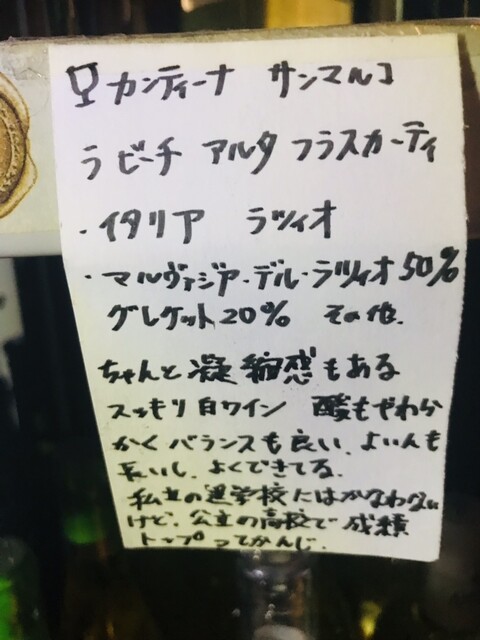 カンティーナ サンマルコ
ラ ビーチ アルタ フラスカーティ
・イタリア ラツィオ
・マルヴァジア・デル・ラツィオ 50%
グレケット 20% その他.
ちゃんと凝縮感もある
スッキリ白ワイン 酸もやわら
かくバランスも良い、よいんも
長いし、よくできてる.
私立の進学校にはかなわない
けど、公立の高校で成績
トップってかんじ.